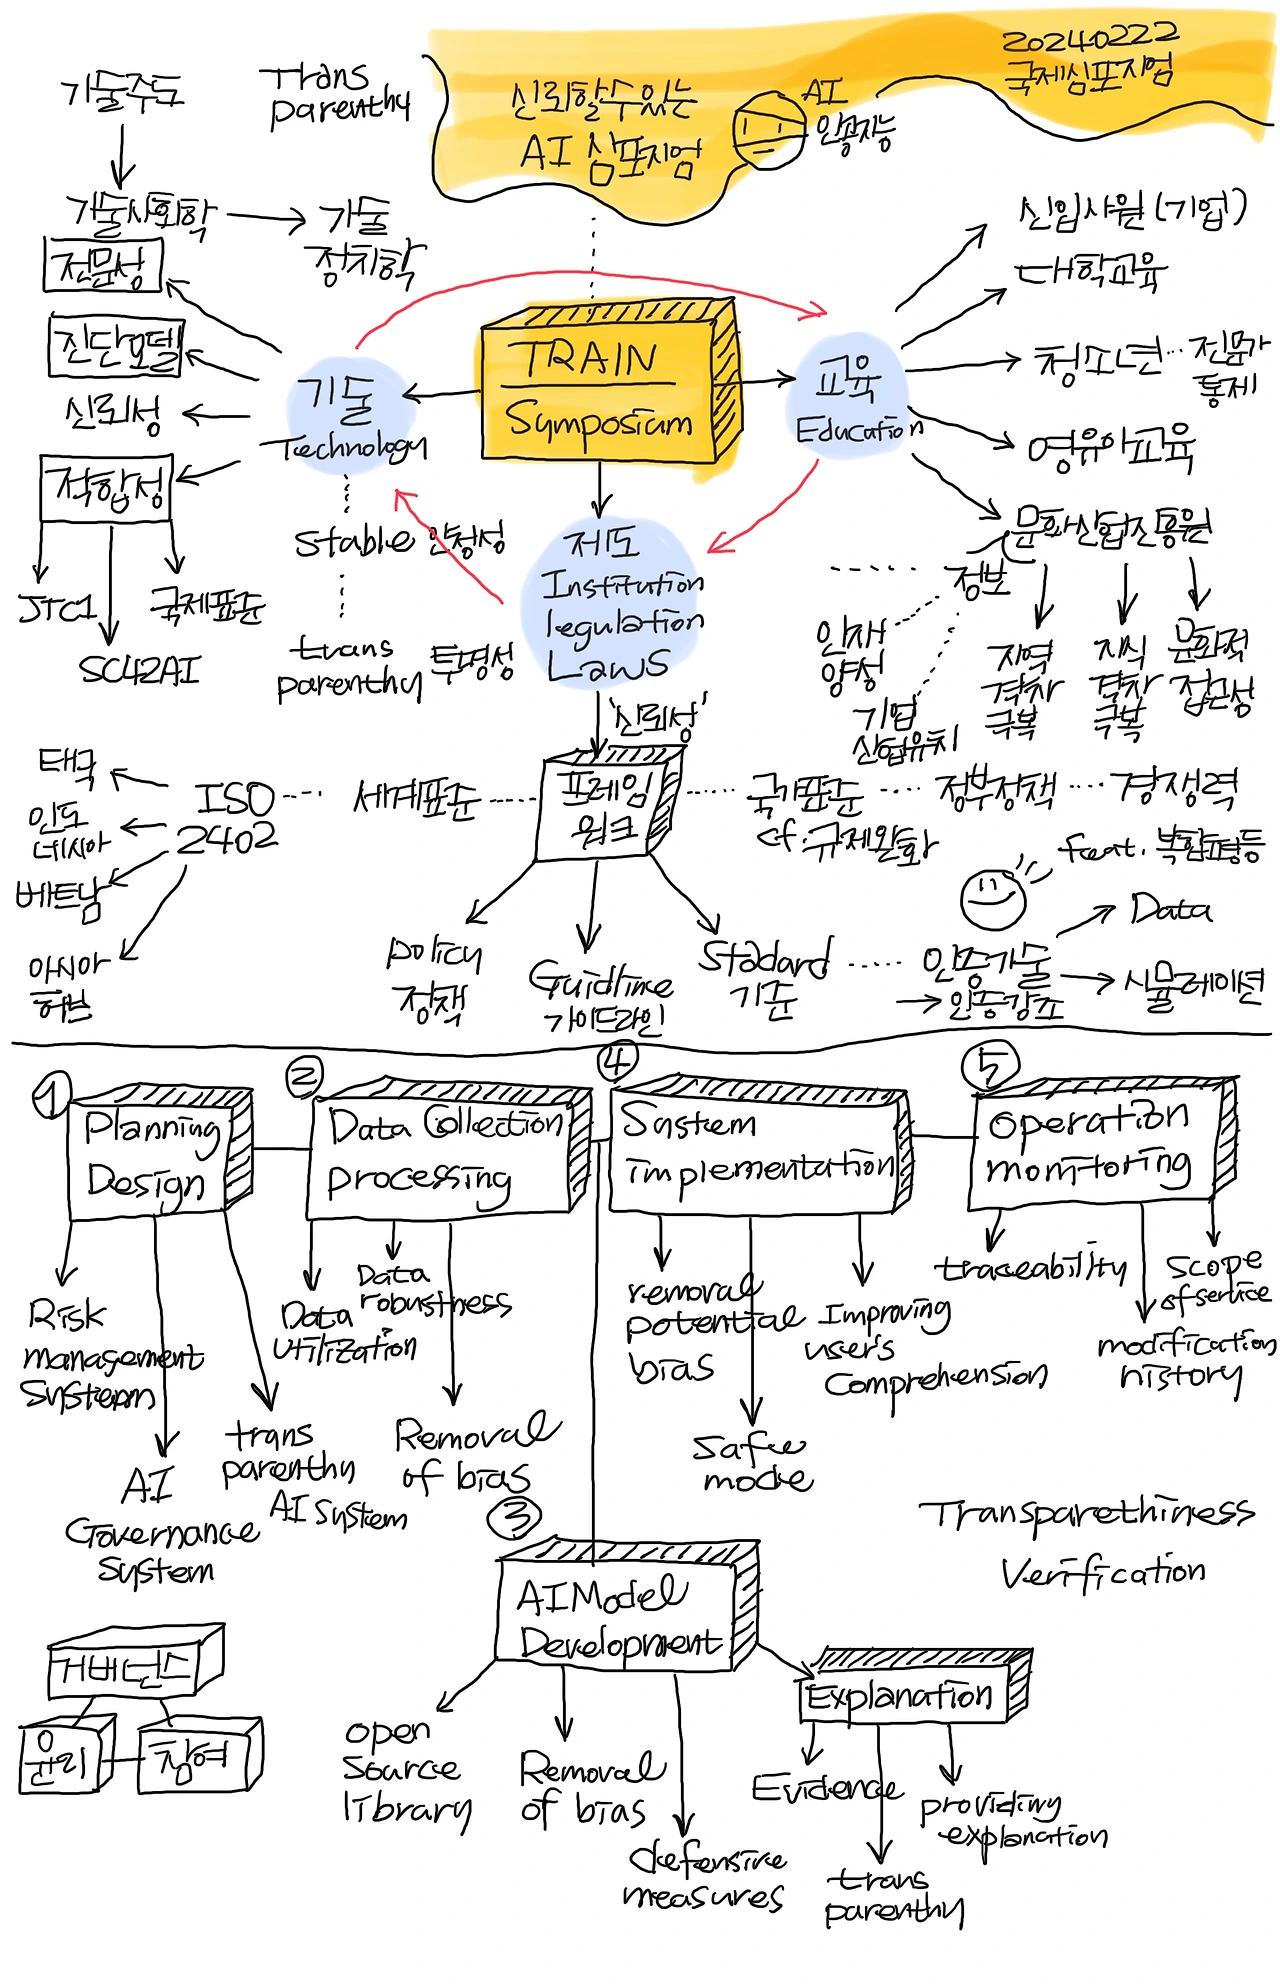 20240222
국제심포지엄
신뢰할수있는
AI 심포지엄
AI
인공지능
기술주도
Trans
parenthy
기술사회학
기술
정치학
전문성
진단모델
신뢰성
적합성
JTC1
국제표준
SC42AI
기술
Technology
Stable 안정성
trans
parenthy 투명성
TRAIN
Symposium
교육
Education
신입사원(기업)
대학교육
청소년
전문가
통제
영유아교육
문화산업진흥원
정보
인재
양성
기업
산업유치
지역
격차
극복
지식
격차
극복
문화적
접근성
제도
Institution
legulation
Laws
'신뢰성'
프레임
워크
세계표준
ISO
2402
태국
인도
네시아
베트남
아시아
허브
국가표준
cf.규제완화
정부정책
경쟁력
feat. 복합평등
policy
정책
Guidline
가이드라인
Stadard
기준
인증기술
인증강조
Data
시뮬레이션
1
Planning
Design
Risk
management
System
AI
Governance
System
trans
parenthy
AI System
2
Data Collection
processing
Data
Utilization
Data
robustness
Removal
of bias
4
System
implementation
removal
potential
bias
Safe
mode
Improving
user's
Comprehension
5
Operation
monitoring
traceability
modification
history
scope
of service
3
AI Model
Development
open
source
library
Removal
of bias
defensive
measures
Explanation
Evidence
trans
parenthy
providing
explanation
Transparethiness
Verification
거버넌스
윤리
참여